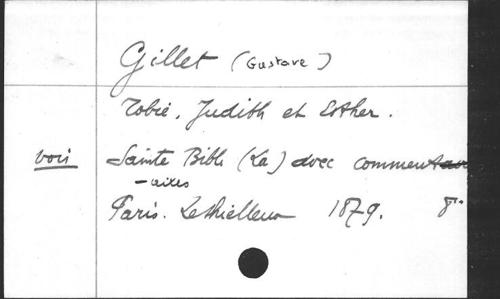 Gillet (Gustave)
Tobie, Judith et Esther.
voir Sainte Bible (La) avec commen
-aires
Paris. Lethielleux 1879. 8°